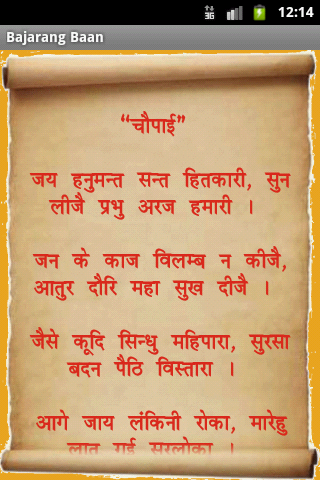 3G 12:14
Bajarang Baan
“चौपाई”
जय हनुमन्त सन्त हितकारी, सुन
लीजै प्रभु अरज हमारी ।
जन के काज विलम्ब न कीजै,
आतुर दौरि महा सुख दीजै ।
जैसे कूदि सिन्धु महिपारा, सुरसा
बदन पैठि विस्तारा ।
आगे जाय लंकिनी रोका, मारेहु
लात गई सुरलोका ।